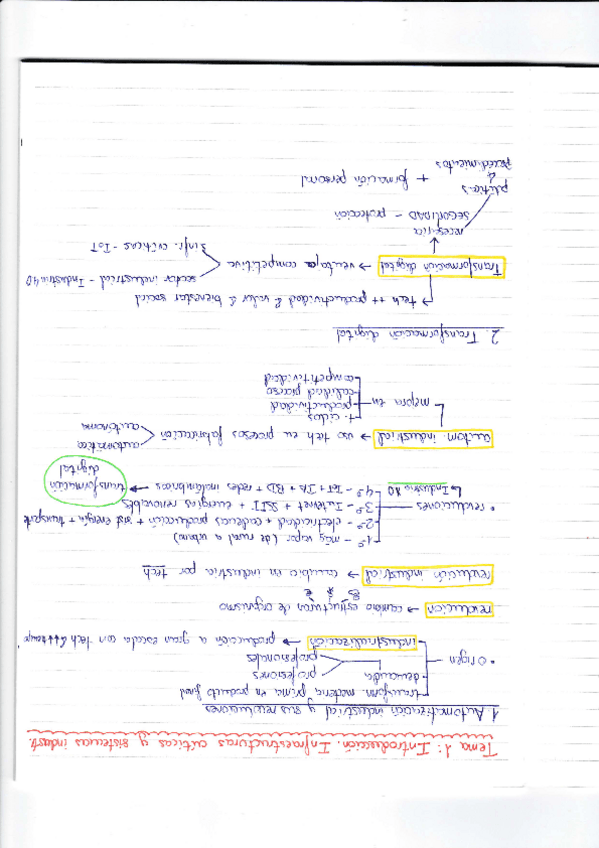 Tema 1: Introducción. Infraestructuras críticas y sistemas indust.
1. Automatización industrial y sus revoluciones
• Origen
transform. materia prima en producto final
demanda
profesiones
profesionales
industrialización → producción a gran escala con tech
revolución → cambio estructuras de organismo
revolución industrial → cambio en industria por tech
• revoluciones
1º - máq. vapor (de rural a urbano)
2º - electricidad + cadenas producción + energía + transporte
3º - Internet + SSII + energías renovables
4º - IoT + IA + BD + redes inalámbricas → transformación digital
↳ Industria 4.0
autom. industrial → uso tech en procesos fabricación
automática
autónoma
mejora en
t. ciclos
productividad
calidad proceso
competitividad
2. Transformación digital
→ tech ++ productividad & valor & bienestar social
Transformación digital → ventaja competitiva
sector industrial - Industria 4.0
infr. críticas - IoT
necesita
SEGURIDAD - protección
políticas
&
procedimientos
+ formación personal